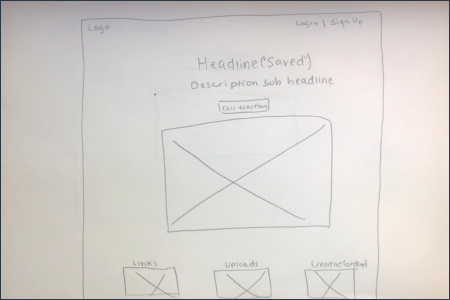 Logo
Login | Sign Up
Headline ("Saved")
Description sub headline
call to action
Links
Uploads
Create Content